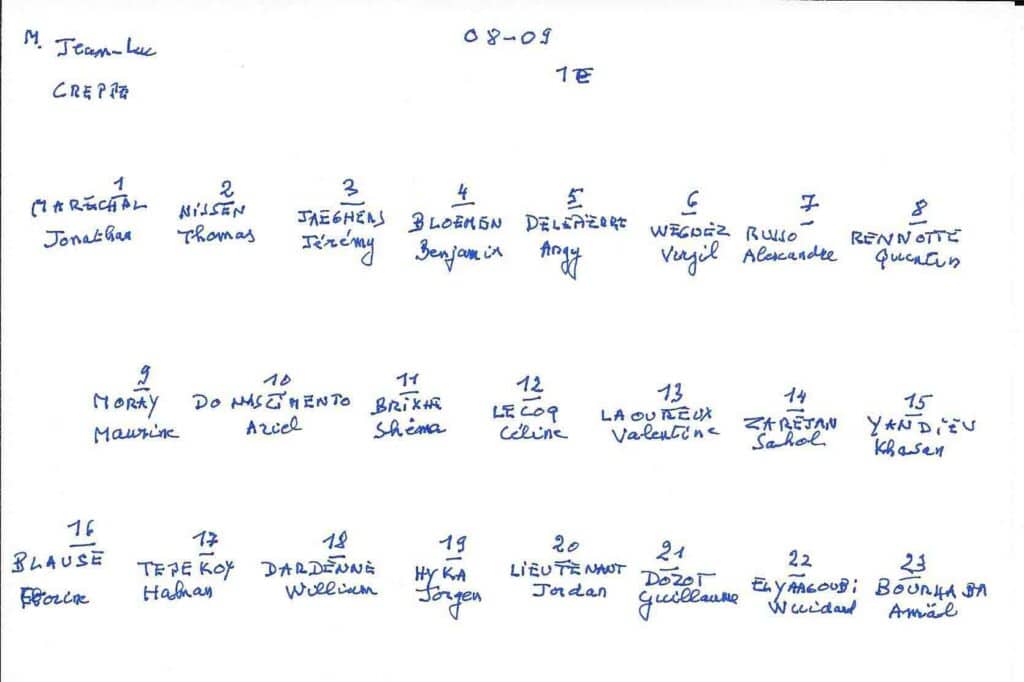 M. Jean-Luc 08-09
CREPPE 1E
1 2 3 4 5 6 7 8
MARECHAL NISSEN JAEGHERS BLOEMEN DELEPIERRE WEGNEZ RUSSO RENNOTTE
Jonathan Thomas Jérémy Benjamin Angy Virgil Alexandre Quentin
9 10 11 12 13 14 15
MORAY DO NASCIMENTO BRIXHE LECOQ LAOUREUX ZAREJAN YANDIEV
Maurine Aziel Shéma Céline Valentine Sahol Khasan
16 17 18 19 20 21 22 23
BLAUSE TEPEKOY DARDENNE HYKA LIEUTENANT DOZOT ELYAAGOUBI BOURHABA
Hakan William Jorgen Jordan Guillaume Amiäl